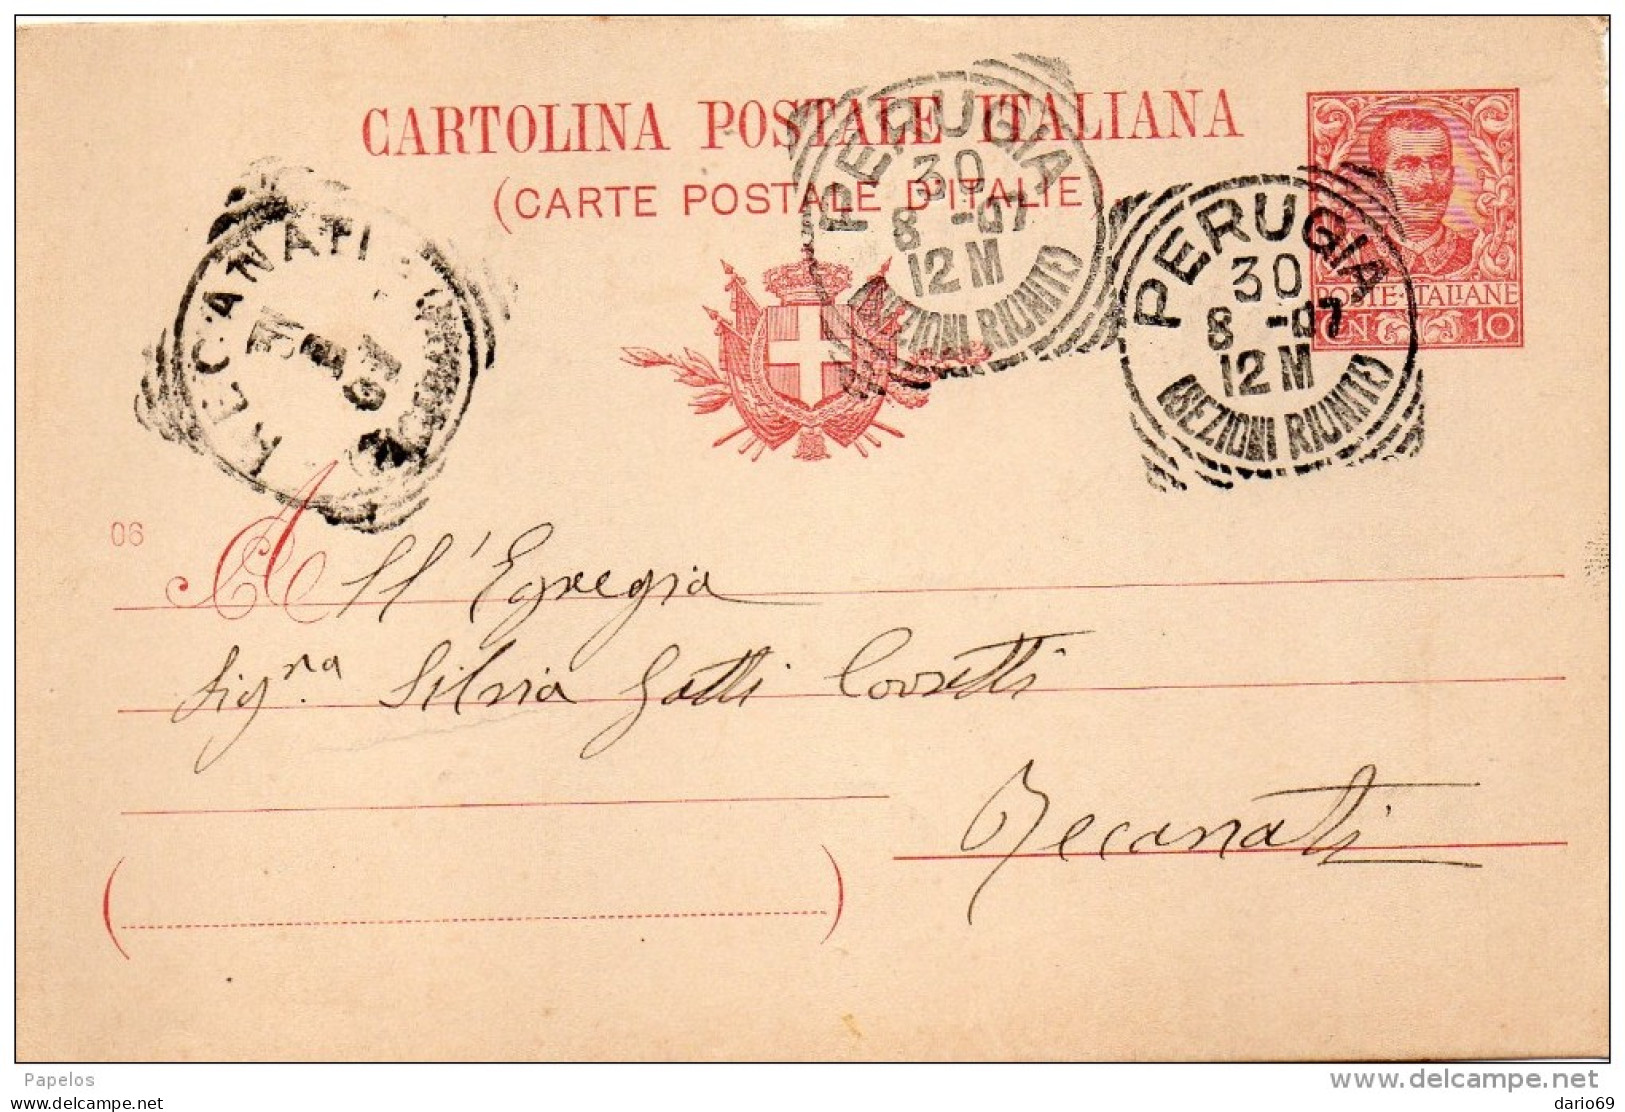 CARTOLINA POSTALE ITALIANA
(CARTE POSTALE D'ITALIE)
PERUGIA
30
8 -07
12 M
(SEZIONI RIUNITE)
PERUGIA
30
8 -07
12 M
(SEZIONI RIUNITE)
POSTE·ITALIANE
CN 10
RECANATI
31
07
06
All'Egregia
Sigra. Silvia Gatti
Recanati
Papelos
www.delcampe.net
dario69